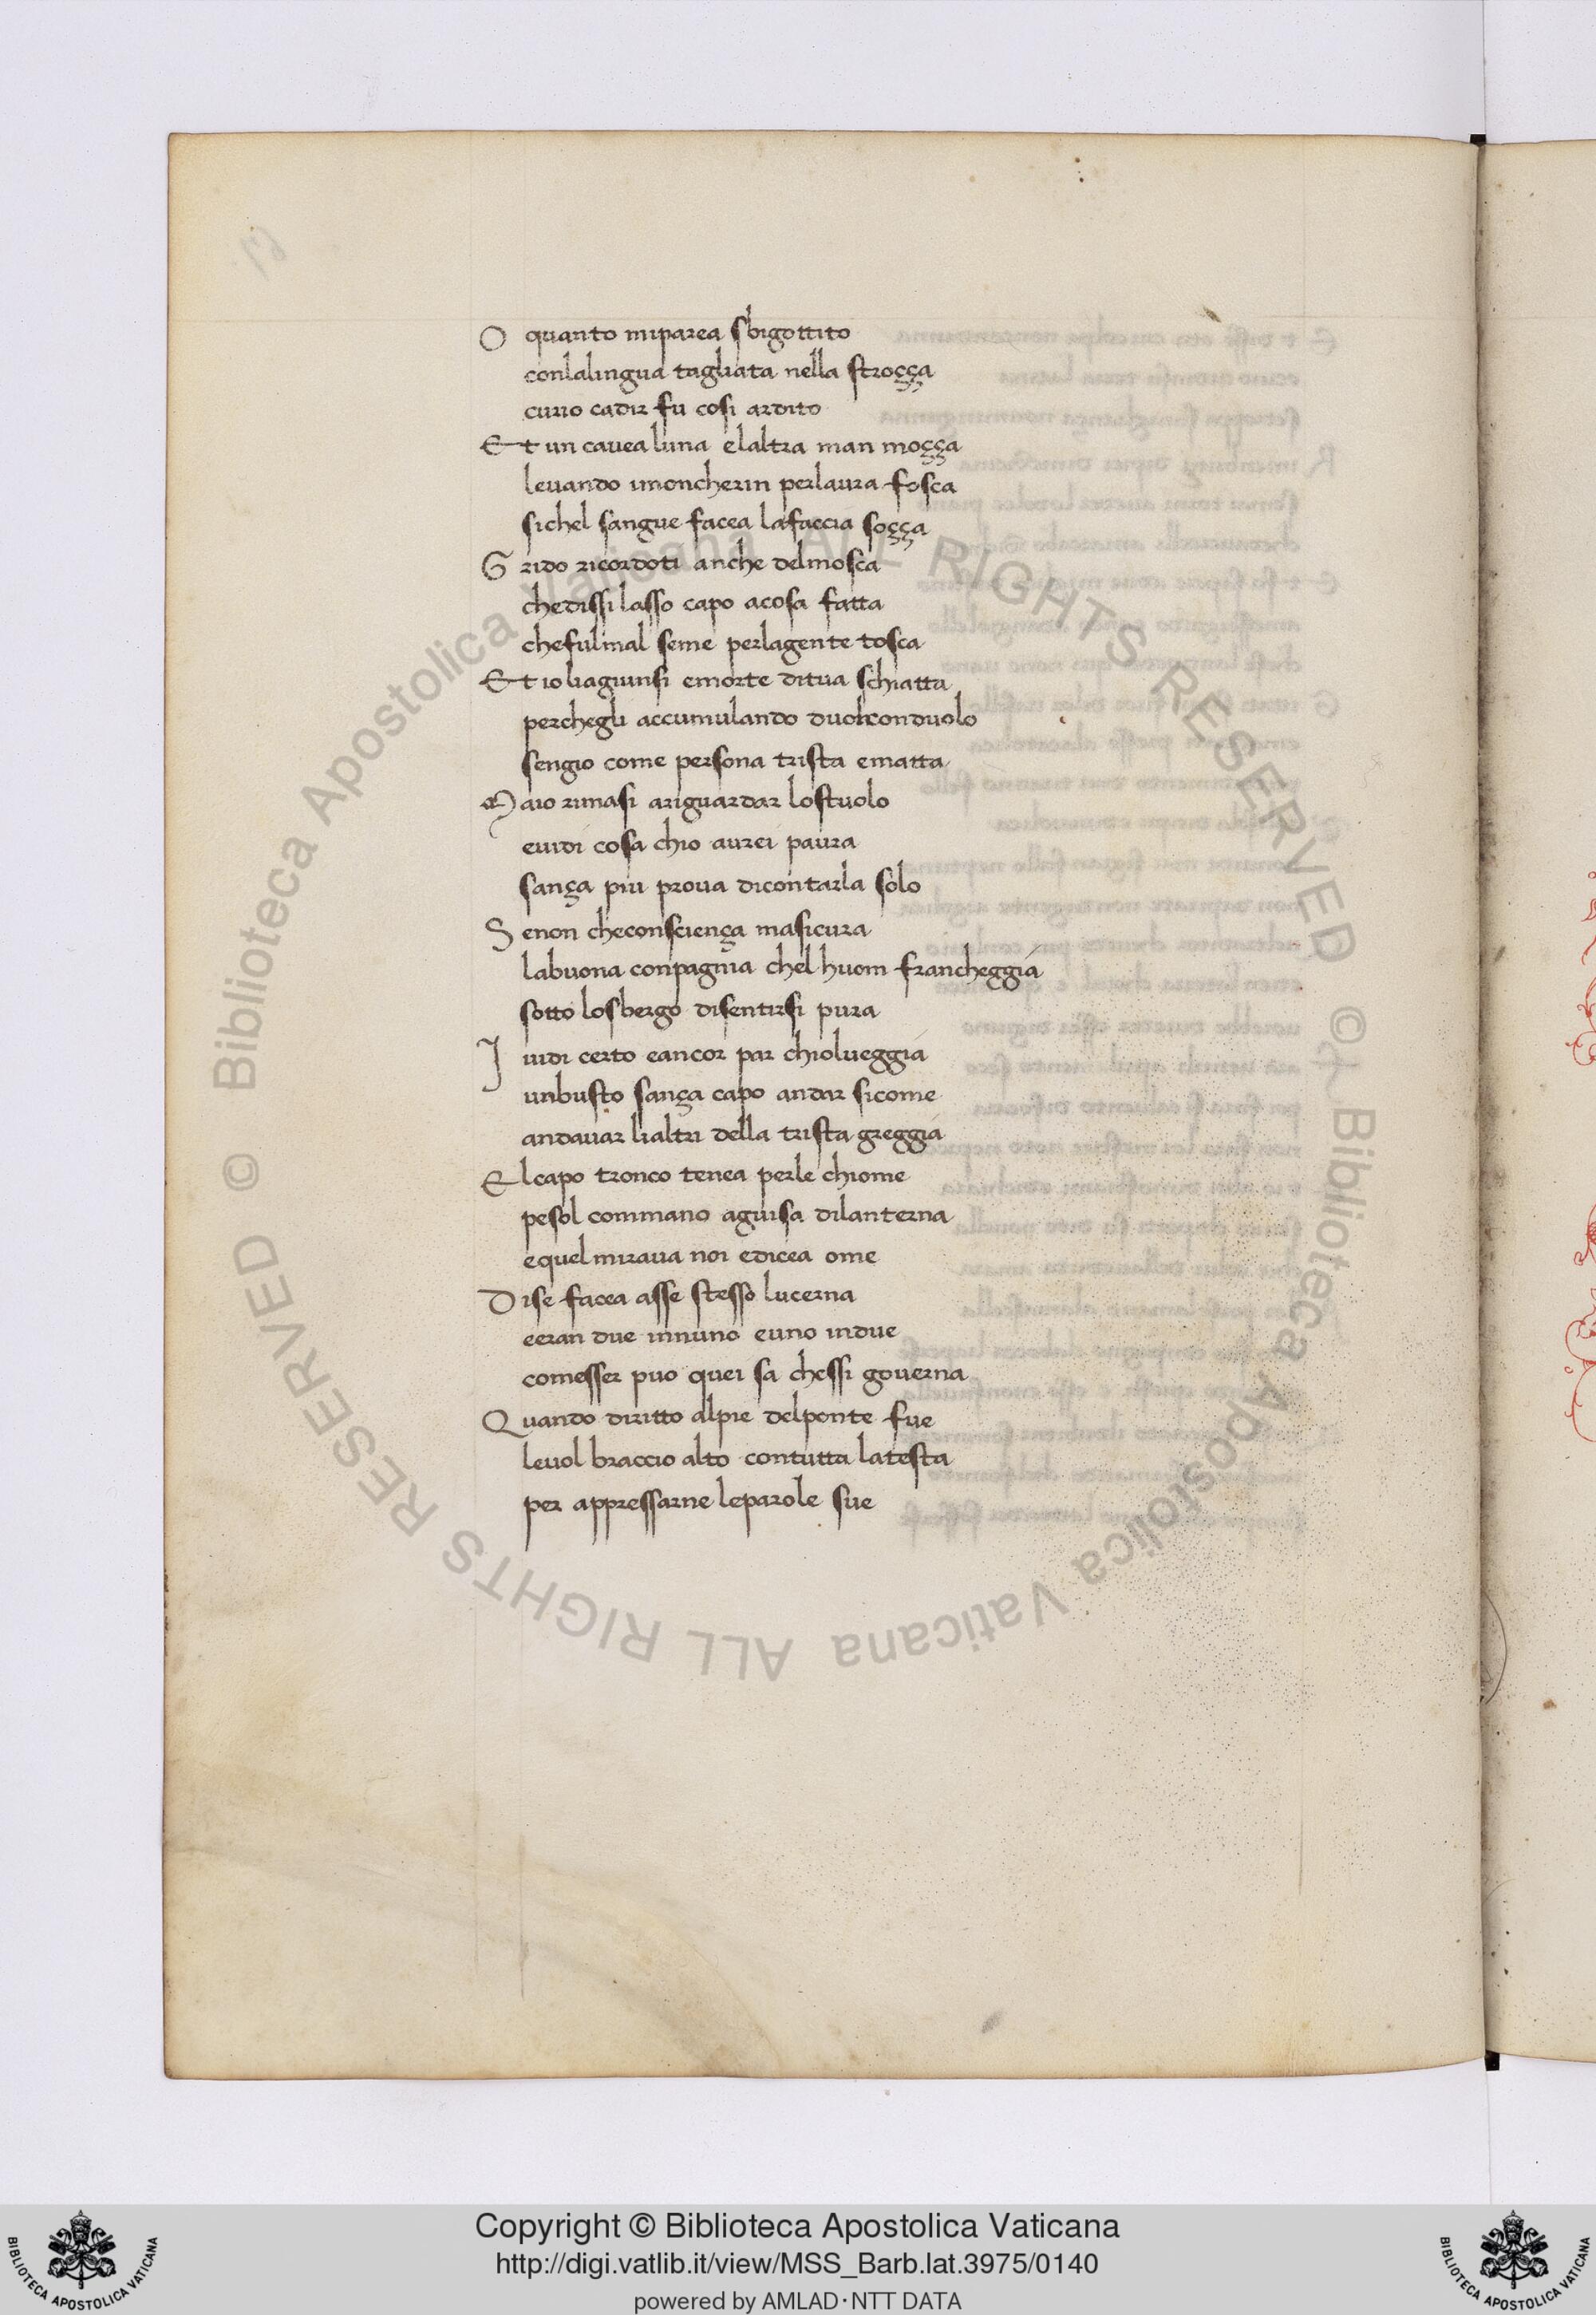 O quanto miparea sbigottito
conlalingua tagliata nella stroçça
curio cadir fu cosi ardito
Et un cavea luna elaltra man moçça
levando imoncherin perlaura fosca
sichel sangue facea lafaccia soçça
Grido ricordoti anche delmosca
chedissi lasso capo acosa fatta
chefulmal seme perlagente tosca
Et io liagiunsi emorte ditua schiatta
perchegli accumulando duol conduolo
sengio come persona trista ematta
Maio rimasi ariguardar lostuolo
euidi cosa chio aurei paura
sança piu proua dicontarla solo
Senon checonsciença masicura
labuona conpagnia chel huom francheggia
sotto losbergo disentirsi pura
I uidi certo eancor par chiolueggia
unbusto sança capo andar sicome
andauar lialtri della trista greggia
El capo tronco tenea perle chiome
pesol commano aguisa dilanterna
equel miraua noi edicea ome
Dise facea asse stesso lucerna
eeran due inuno euno indue
comesser puo quei sa chessi gouerna
Quando diritto alpie delponte fue
leuol braccio alto contutta latesta
per appressarne leparole sue
© Biblioteca Apostolica Vaticana ALL RIGHTS RESERVED
© Biblioteca Apostolica Vaticana ALL RIGHTS RESERVED
Copyright © Biblioteca Apostolica Vaticana
http://digi.vatlib.it/view/MSS_Barb.lat.3975/0140
powered by AMLAD·NTT DATA
BIBLIOTECA APOSTOLICA VATICANA
BIBLIOTECA APOSTOLICA VATICANA